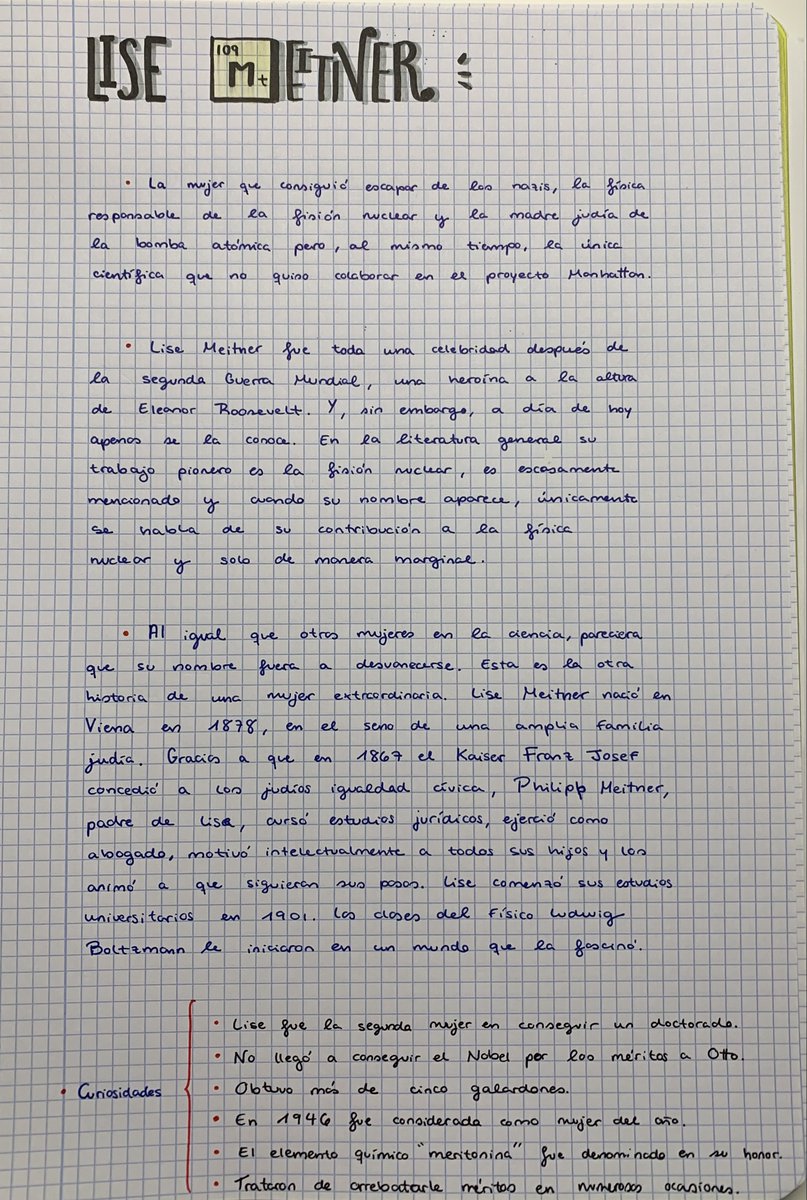 LISE 109 Mt EITNER
• La mujer que consiguió escapar de los nazis, la física
responsable de la fisión nuclear y la madre judía de
la bomba atómica pero, al mismo tiempo, la única
científica que no quiso colaborar en el proyecto Manhattan.
• Lise Meitner fue toda una celebridad después de
la segunda Guerra Mundial, una heroína a la altura
de Eleanor Roosevelt. Y, sin embargo, a día de hoy
apenas se la conoce. En la literatura general su
trabajo pionero es la fisión nuclear, es escasamente
mencionado y cuando su nombre aparece, únicamente
se habla de su contribución a la física
nuclear y solo de manera marginal.
• Al igual que otras mujeres en la ciencia, pareciera
que su nombre fuera a desvanecerse. Esta es la otra
historia de una mujer extraordinaria. Lise Meitner nació en
Viena en 1878, en el seno de una amplia familia
judía. Gracias a que en 1867 el Kaiser Franz Josef
concedió a los judíos igualdad cívica, Philipp Meitner,
padre de Lise, cursó estudios jurídicos, ejerció como
abogado, motivó intelectualmente a todos sus hijos y los
animó a que siguieran sus pasos. Lise comenzó sus estudios
universitarios en 1901. Las clases del físico Ludwig
Boltzmann le iniciaron en un mundo que la fascinó.
• Curiosidades
• Lise fue la segunda mujer en conseguir un doctorado.
• No llegó a conseguir el Nobel por los méritos a Otto.
• Obtuvo más de cinco galardones.
• En 1946 fue considerada como mujer del año.
• El elemento químico "meritonina" fue denominado en su honor.
• Trataron de arrebatarle méritos en numerosas ocasiones.